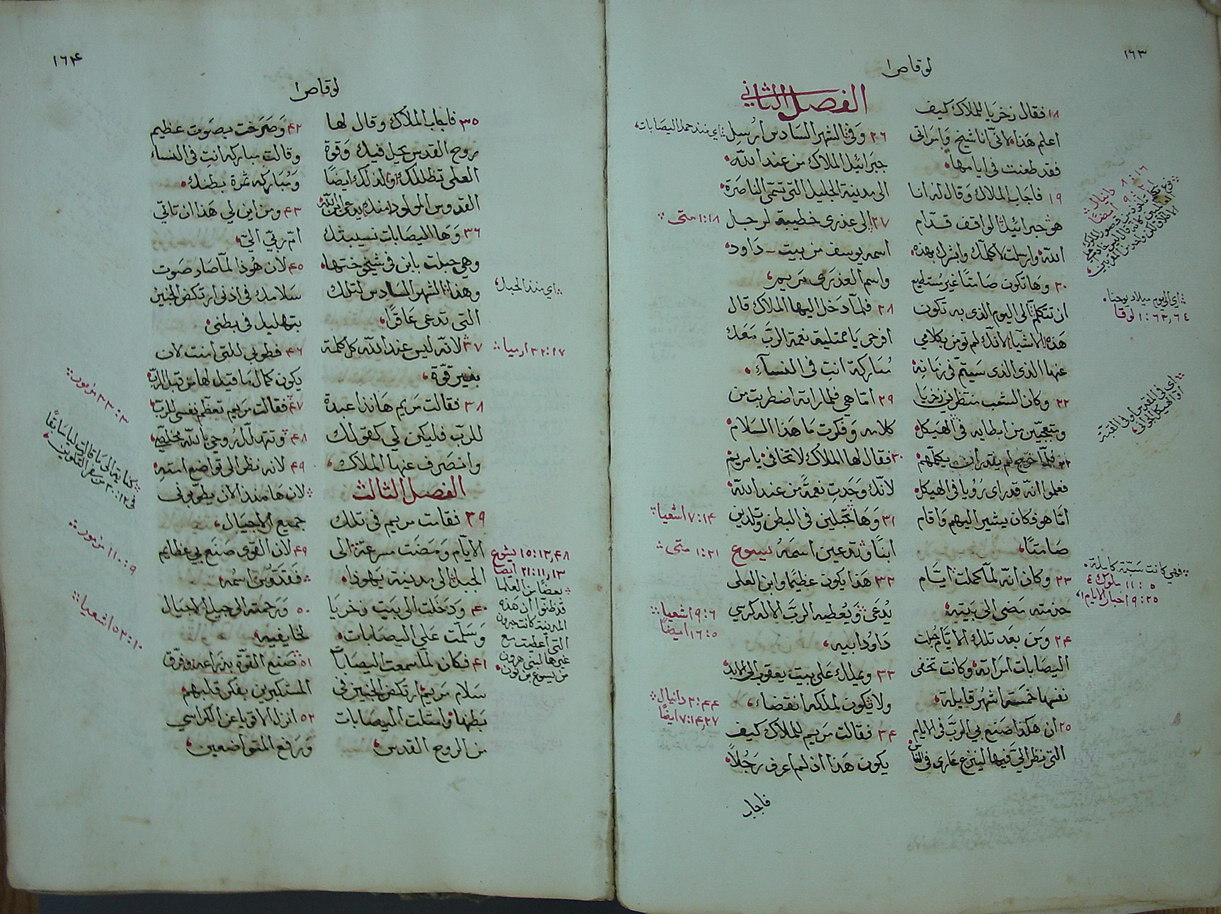 ١٦٣
لوقا ص ١
١٨ فقال زخريا للملاك كيف
اعلم هذا لاني انا شيخ وامراتي
فقد طعنت في ايامها
١٩ فاجاب الملاك وقال له انا
هو جبرائيل الواقف قدام
الله وارسلت لاكلمك وابشرك بهذه
٢٠ وها تكون صامتًا غير مستطيع
ان تتكلم الى اليوم الذي به تكون
هذه الاشيآ لانك لم تومن بكلامي
هذا الذي سيتم في زمانه
٢١ وكان الشعب منتظرين زخريا
ومتعجبين من ابطايه في الهيكل
٢٢ فلما خرج لم يقدر ان يكلمهم
فعلموا انه قد راى رويا في الهيكل
اما هو فكان يشير اليهم واقام
صامتًا
٢٣ وكان انه لما كملت ايام
خدمته مضى الى بيته
٢٤ ومن بعد تلك الايام حبلت
اليصابات امراته وكانت تخفي
نفسها خمسة اشهر قايلة
٢٥ ان هكذا صنع بي الرب في الايام
التي نظر الي فيها لينزع عاري في الناس
الفصل الثاني
٢٦ وفي الشهر السادس ارسل
جبرائيل الملاك من عند الله
الى مدينة الجليل التي تسمى الناصرة
٢٧ الى عذرى خطيبة لرجل
اسمه يوسف من بيت داود
واسم العذرى مريم
٢٨ فلما دخل اليها الملاك قال
افرحي يا ممتلية نعمة الرب معك
مباركة انتِ في النسآء
٢٩ اما هي فلما راته اضطربت من
كلامه وفكرت ما هذا السلام
٣٠ فقال لها الملاك لا تخافي يا مريم
لانك وجدتِ نعمة من عند الله
٣١ وها تحبلين في البطن وتلدين
ابنًا وتدعين اسمه يسوع
٣٢ هذا يكون عظيمًا وابن العلى
يُدعى ويُعطيه الرب الاله كرسي
داود ابيه
٣٣ ويملك على بيت يعقوب الى الابد
ولا تكون لملكه انقضاء
٣٤ فقالت مريم للملاك كيف
يكون هذا اذ لم اعرف رجُلًا
فاجاب
اي الى يوم ميلاد يوحنا
١:٦٣,٦٤ لوقا
اي منذ حمل اليصابات
١:١٨ متى
٧:١٤ اشعيا
١:٢١ متى
٩:٦ اشعيا
١٦:٥ ايضًا
٢:٤٤ دانيال
٧:١٤,٢٧ ايضًا
١٦٤
لوقا ص ١
٣٥ فاجاب الملاك وقال لها
روح القدس يحل فيك وقوة
العلى تظللك ولذلك ايضًا
القدوس المولود منك يدعى ابن الله
٣٦ وها اليصابات نسيبتك
وهي حبلت بابن في شيخوختها
وهذا الشهر السادس لتلك
التي تدعى عاقرًا
٣٧ لانه ليس عند الله كل كلمة
بغير قوة
٣٨ فقالت مريم ها انذا عبدة
للرب فليكن لي كقولك
وانصرف عنها الملاك
الفصل الثالث
٣٩ فقامت مريم في تلك
الايام ومضت مسرعة الى
الجبل الى مدينة يهودا
٤٠ ودخلت الى بيت زخريا
وسلمت على اليصابات
٤١ فكان لما سمعت اليصابات
سلام مريم ارتكض الجنين في
بطنها وامتلت اليصابات
من الروح القدس
٤٢ وصرخت بصوت عظيم
وقالت مباركة انت في النساء
ومُباركة ثمرة بطنك
٤٣ ومن اين لي هذا ان تاتي
ام ربي الي
٤٤ لان هوذا لما صار صوت
سلامك في اذني ارتكض الجنين
بتهليل في بطني
٤٥ فطوبى للتي امنت لان
يكون كمال ما قيل لها من قبل الرب
٤٦ فقالت مريم تعظم نفسي للرب
٤٧ وتهلل روحي بالله مخلصي
٤٨ لانه نظر الى تواضع امته
لان ها منذ الان يطوبوني
جميع الاجيال
٤٩ لان القوي صنع بي عظايم
فقدوس اسمه
٥٠ ورحمته الى جيل الاجيال
لخايفيه
٥١ صنع القوة بذراعه وفرق
المستكبرين بفكر قلبهم
٥٢ انزل الاقويا عن الكراسي
ورفع المتواضعين
اي منذ الحبل
٣٢:١٧ ارميا
١٥:١٣,٤٨ يشوع
٢١:١١,١٣ ايضا
٣٣:٣ مزمور
١١٠:٩ مزمور
٥٢:١٠ اشعيا